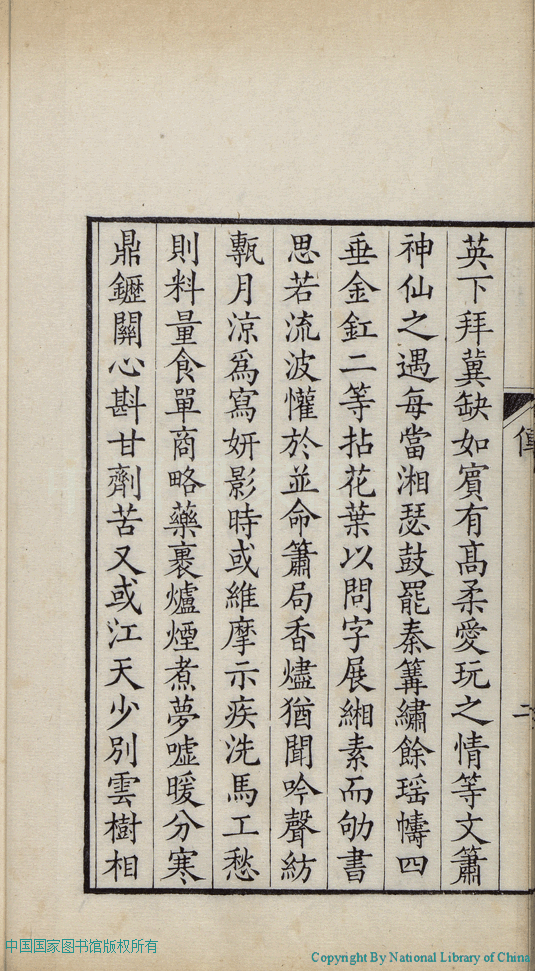 英下拜冀缺如賓有髙柔愛玩之情等文簫
神仙之遇每當湘瑟鼓罷秦篝繡餘瑶幬四
垂金釭二等拈花葉以問字展緗素而劬書
思若流波懽於並命簫局香燼猶聞吟聲紡
甎月涼爲寫妍影時或維摩示疾洗馬工愁
則料量食單商略藥裹爐煙煮夢噓暖分寒
鼎鑩關心斟甘劑苦又或江天少別雲樹相
傳
二
中国国家图书馆版权所有
Copyright By National Library of China